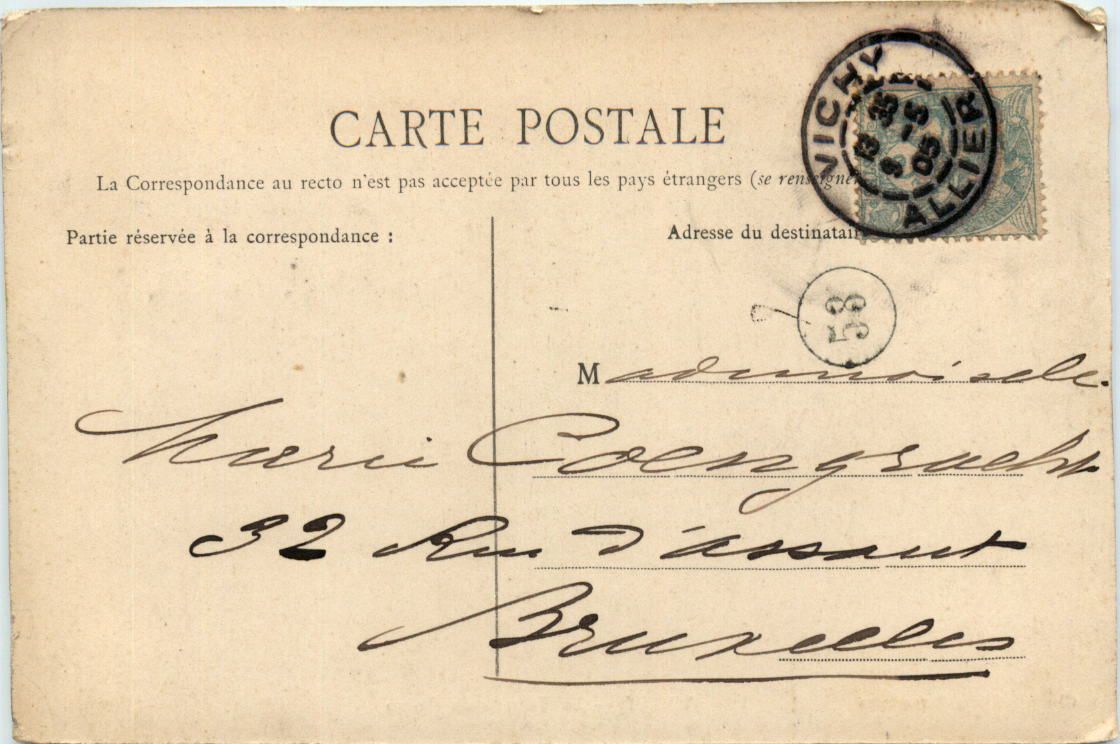 CARTE POSTALE
La Correspondance au recto n'est pas acceptée par tous les pays étrangers (se renseigne
Partie réservée à la correspondance :
Adresse du destinatair
VICHY
13 35
9 -5
05
ALLIER
58
Mademoiselle
Marie
32 Rue d'assaut
Bruxelles